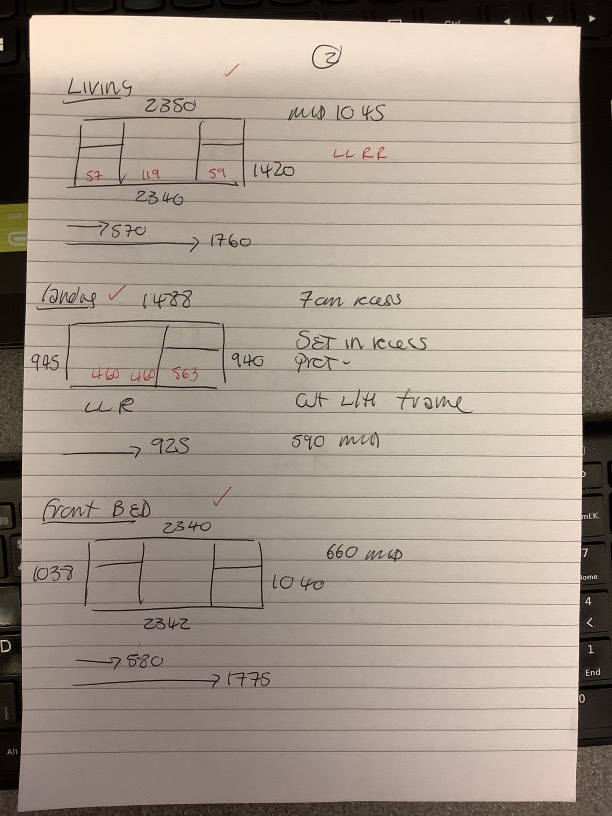 ②
LIVING
2350
MID 1045
LL RR
57 119 59
1420
2340
570
1760
Landing 1488
7cm recess
945
940
SET in recess
460 460 563
LLR
CUT L/H frame
925
590 MID
Front BED
2340
660 MID
1038
1040
2342
580
1775
Alt
7
4
<
1
End
0
D